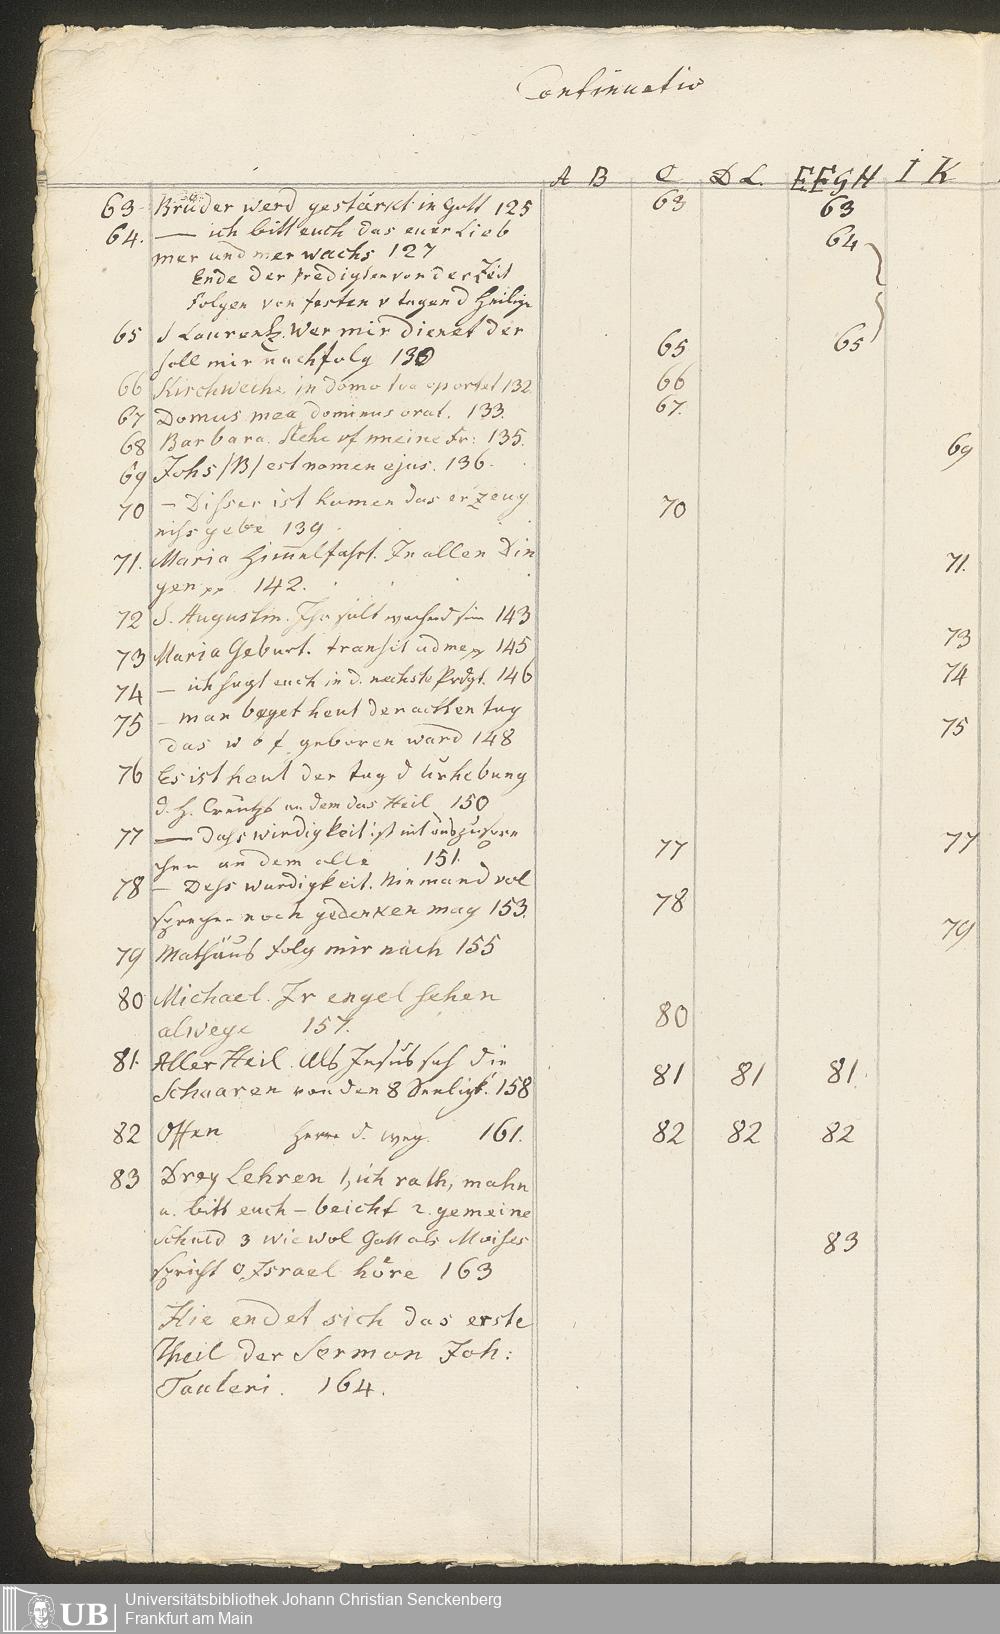 Continuatio
A B C D L. E F G H I K
63 Brüder werd gestärkt in Gott 125 63 63
64. — ich bitt euch das euer Lieb 64
mer und mer wachs 127
Ende der Predigten von der Zeit
Folgen von festen v tagen d Heilige
65 S Laurentz. Wer mir dienet der
soll mir nachfolg 130 65 65
66 Kirchweihe in domo tua oportet 132 66
67 Domus mea dominus orat. 133. 67.
68 Barbara. Stehe uf meine Fr: 135.
69 Johs /B/ est nomen ejus. 136. 69
70 — Disser ist kumen das er zeug
niss gebe 139. 70
71. Maria Himmelfahrt. In allen Din 71.
gen 142.
72 S. Augustin. Ihr sült sin 143
73 Maria Geburt. transit ad me 145 73
74 — ich sagt euch in d. nechste Prdgt. 146 74
75 — man beget heut den achten tag 75
das w geboren ward 148
76 Es ist heut der tag d Urhebung
d. H. Creutzs an dem das Heil 150
77 — Dass wirdigkeit ist nit uszuspre 77 77
chen an dem alle 151.
78 — Dess wurdigkeit. Niemand vol
sprechen noch gedenken mag 153. 78
79 Mathäus folg mir nach 155 79
80 Michael. Ir engel sehen
alwege 157. 80
81. Aller Heil. Als Jesus sah die
Schaaren von den 8 Seeligk. 158 81 81 81.
82 Offen Herre d. weg. 161. 82 82 82
83 Drey Lehren 1, ich rath, mahn
u. bitt euch — beicht 2. gemeine
Schuld 3 wie wol Gott als Moises 83
spricht O Israel höre 163
Hie endet sich das erste
Theil der Sermon Joh:
Tauleri. 164.
UB
Universitätsbibliothek Johann Christian Senckenberg
Frankfurt am Main